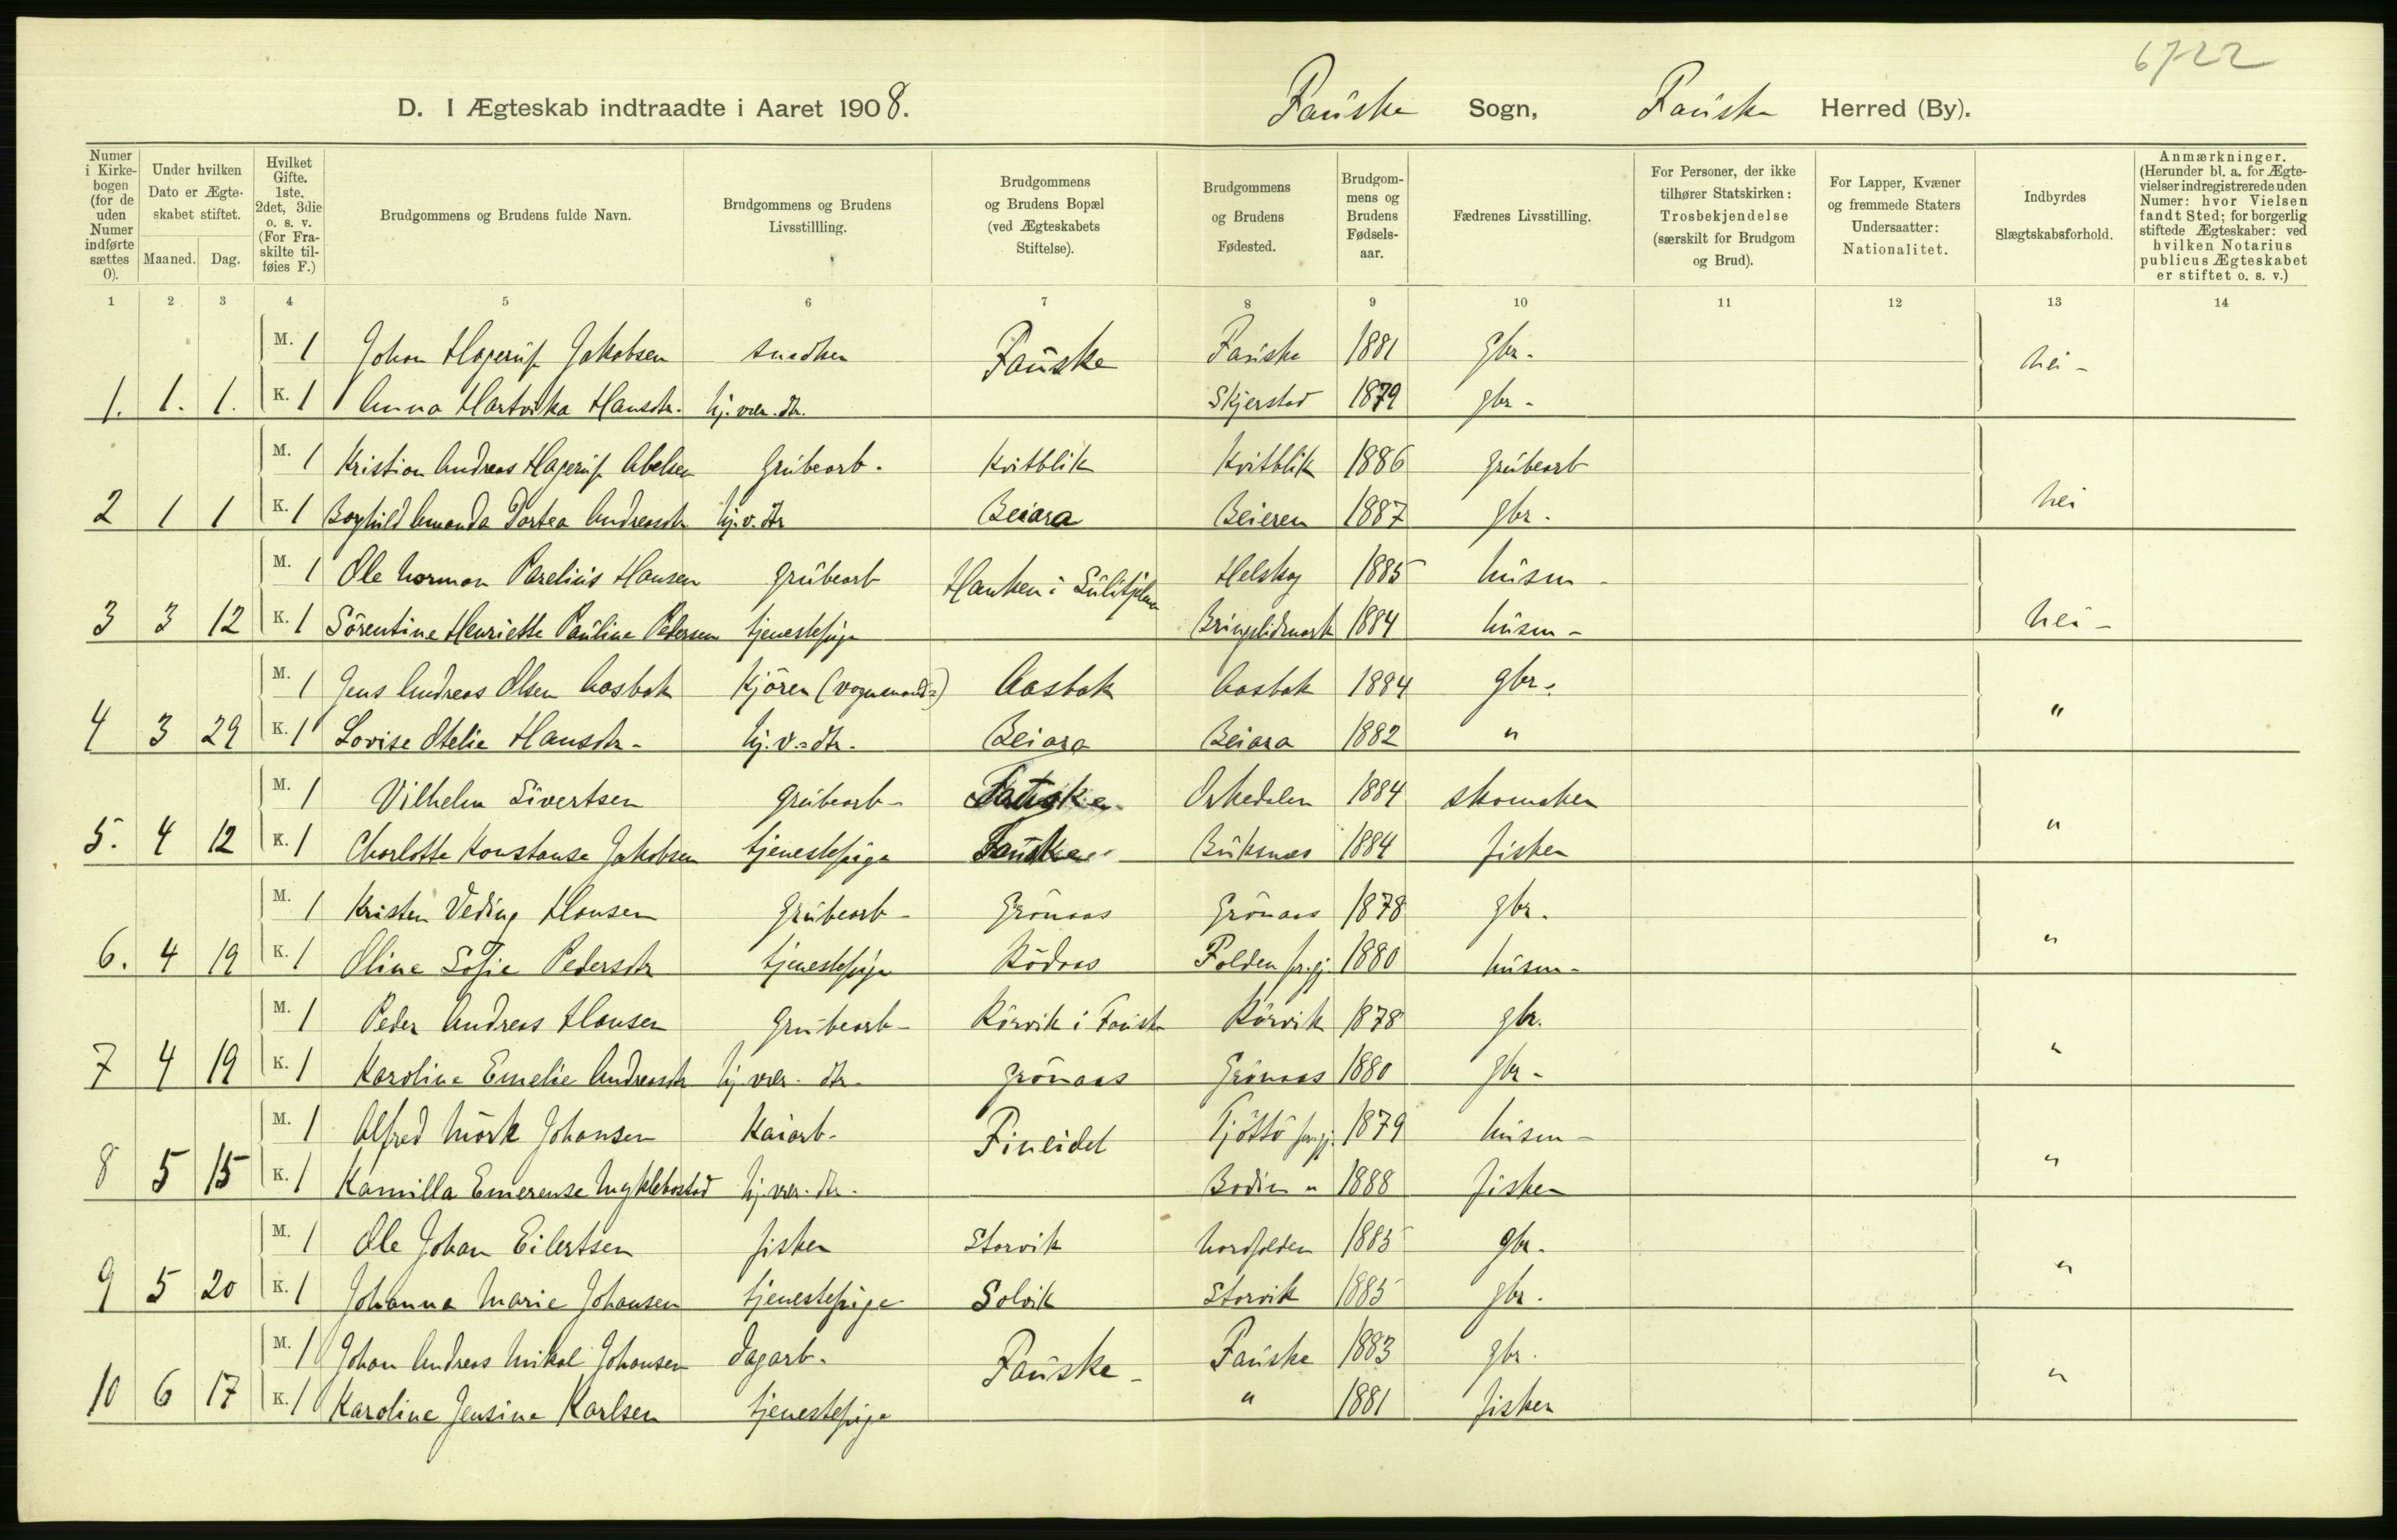 6722
D. I Ægteskab indtraadte i Aaret 1908. Fauske Sogn, Fauske Herred (By).
Numer i Kirkebogen (for de uden Numer indførte sættes 0).
Under hvilken Dato er Ægteskabet stiftet. Maaned. Dag.
Hvilket Gifte. 1ste, 2det, 3die o. s. v. (For Fraskilte tilføies F.)
Brudgommens og Brudens fulde Navn.
Brudgommens og Brudens Livsstillling.
Brudgommens og Brudens Bopæl (ved Ægteskabets Stiftelse).
Brudgommens og Brudens Fødested.
Brudgommens og Brudens Fødselsaar.
Fædrenes Livsstilling.
For Personer, der ikke tilhører Statskirken: Trosbekjendelse (særskilt for Brudgom og Brud).
For Lapper, Kvæner og fremmede Staters Undersaatter: Nationalitet.
Indbyrdes Slægtskabsforhold.
Anmærkninger. (Herunder bl. a. for Ægtevielser indregistrerede uden Numer: hvor Vielsen fandt Sted; for borgerlig stiftede Ægteskaber: ved hvilken Notarius publicus Ægteskabet er stiftet o. s. v.)
1 2 3 4 5 6 7 8 9 10 11 12 13 14
M. 1 Johan Hagerup Jakobsen snedker Fauske Fauske 1881 gbr. nei
1. 1. 1. K. 1 Anna Hartvika Hansdtr. hj. vær. dtr. Skjerstad 1879 gbr.
M. 1 Kristian Andreas Hagerup Abelsen Grubearb. Kvitblik Kvitblik 1886 grubearb
2 1 1 K. 1 Borghild Amanda Dortea Andreasdtr hj. v. dtr Beiara Beieren 1887 gbr. nei
M. 1 Ole Norman Parelius Hansen grubearb Hanken i Sulitjelma Helskog 1885 husm
3 3 12 K. 1 Sörentine Henriette Pauline Petersen tjenestepige 1884 husm nei
M. 1 Jens Andreas Olsen Aasbak Kjörer (vognmand) Aasbak Aasbak 1884 gbr.
4 3 29 K. 1 Lovise Otelie Hansdtr. hj. v. dtr. Beiara Beiara 1882 " "
M. 1 Vilhelm Sivertsen grubearb Fauske Orkedalen 1884 skomaker
5. 4 12 K. 1 Charlotte Konstanse Jakobsen tjenestepige Fauske Buksnes 1884 fisker "
M. 1 Kristen Veding Hansen Grubearb Grönaas Grönaas 1878 gbr.
6. 4 19 K. 1 Oline Sofie Pedersdtr tjenestepige Rödaas Folden prgj. 1880 husm "
M. 1 Peder Andreas Hansen Grubearb Rörvik i Fauske Rörvik 1878 gbr.
7 4 19 K. 1 Karoline Emelie Andreasdtr hj. vær. dtr. Grönaas Grönaas 1880 gbr "
M. 1 Alfred Mörk Johansen Kaiarb. Fineidet Tjöttö prgj. 1879 husm
8 5 15 K. 1 Kamilla Emerense Myklebostad hj. vær. dtr. Bodin " 1888 fisker "
M. 1 Ole Johan Eilertsen fisker Storvik Nordfolden 1885 gbr.
9 5 20 K. 1 Johanna Marie Johansen tjenestepige Solvik Storvik 1885 gbr. "
M. 1 Johan Andreas Mikal Johansen dagarb. Fauske Fauske 1883 gbr.
10 6 17 K. 1 Karoline Jensine Karlsen tjenestepige " 1881 fisker "